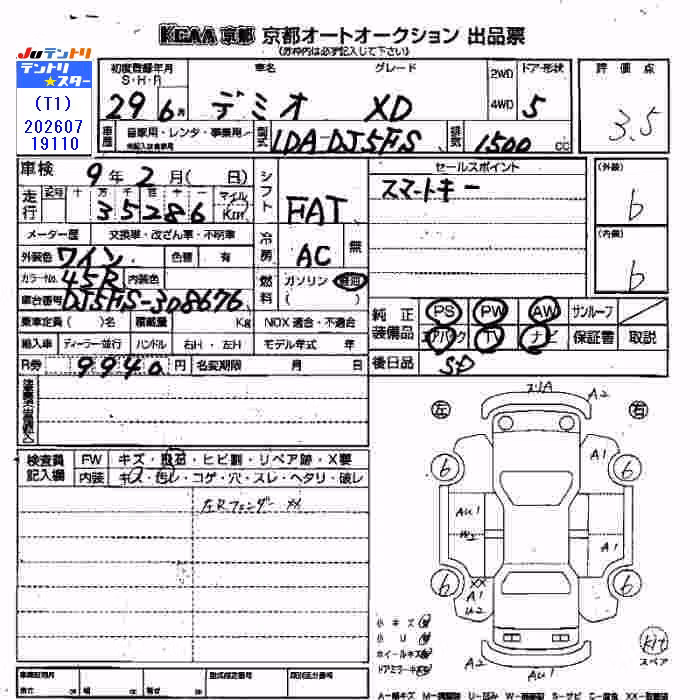 KCAA 京都 京都オートオークション 出品票
(赤枠内は必ず記入して下さい)
JUテントリ
テントリ★スター
(T1)
202607
19110
初度登録年月
S・H・R
29 6月
車名
グレード
デミオ XD
2WD
4WD
ドア・形状
5
評価点
3.5
車歴
自家用・レンタ・事業用
型式
LDA-DJ5FS
排気
1500 cc
車検 9年2月(日)
走行
十 万 千 百 十 一
35286
マイル
Km
シフト
FAT
セールスポイント
スマートキー
(外装)
6
(内装)
6
メーター歴 交換車・改ざん車・不明車
冷房
AC
無
外装色 ワイン 色替 有
カラーNo. 45R 内装色
燃料
ガソリン 軽油
( )
車台番号 DJ5FS-308676
乗車定員( )名 積載量 Kg NOX適合・不適合
輸入車 ディーラー・並行 ハンドル 右H・左H モデル年式 年
R券 9940円 名変期限 月 日
純正装備品
PS PW AW サンルーフ
エアバック TV ナビ 保証書 取説
後日品 SD
検査員記入欄
FW キズ・飛石・ヒビ割・リペア跡・X要
内装 キズ・汚レ・コゲ・穴・スレ・ヘタリ・破レ
左Rフェンダー XX
左
右
スリA
A2
6
A1
6
AU1
W2
A1
6
XX
A1
U2
6
小キズ
小U
ホイールキズ
ドアミラーキズ
A2
AU1
kit
スペア